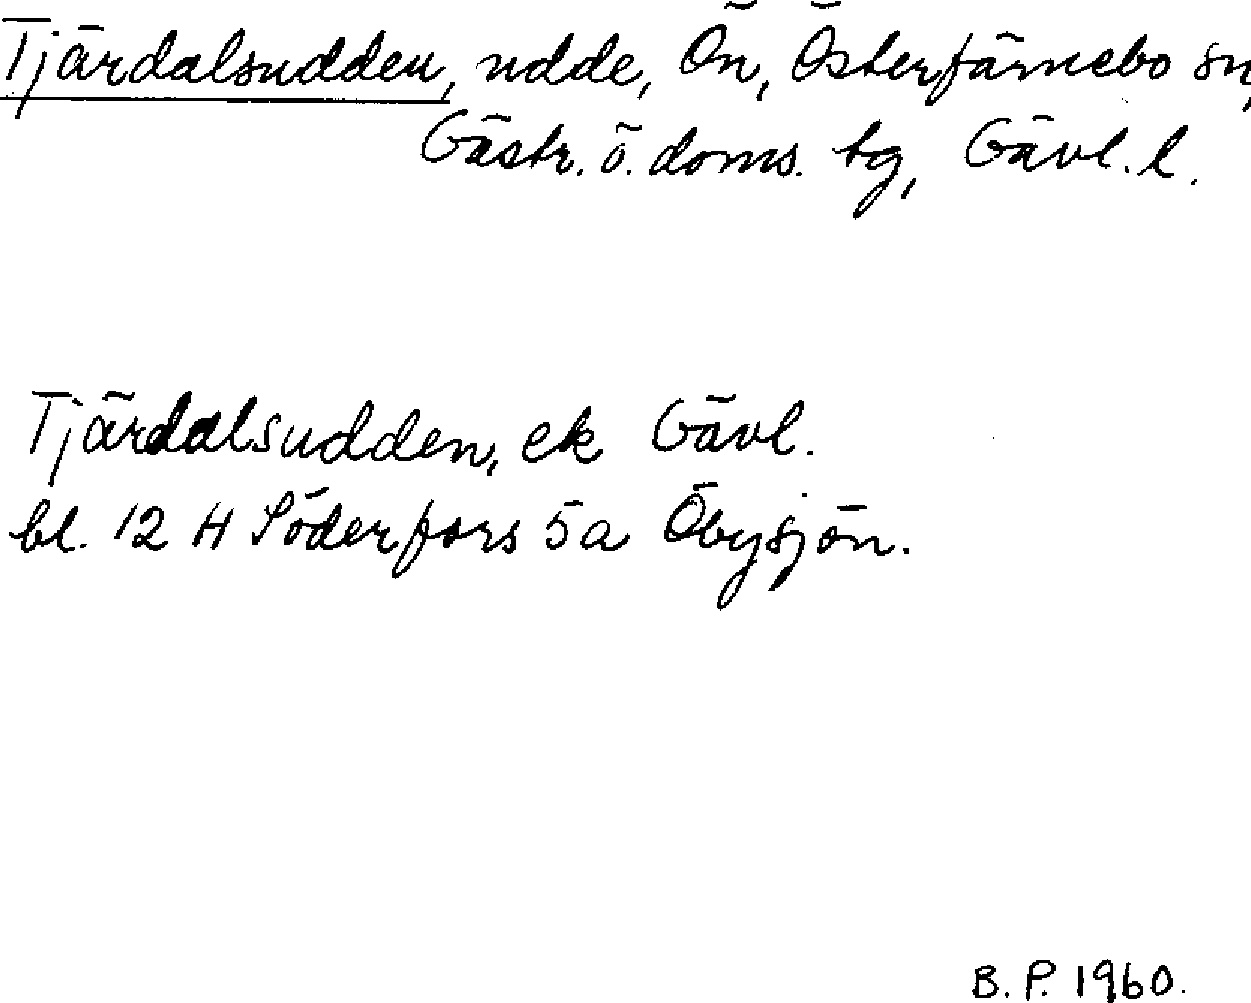 Tjärdalsudden, udde, Ön, Österfärnebo sn,
Gästr. ö. doms. tg, Gävl. l.
Tjärdalsudden, ek Gävl.
bl. 12 H Söderfors 5a Öbysjön.
B. P. 1960.